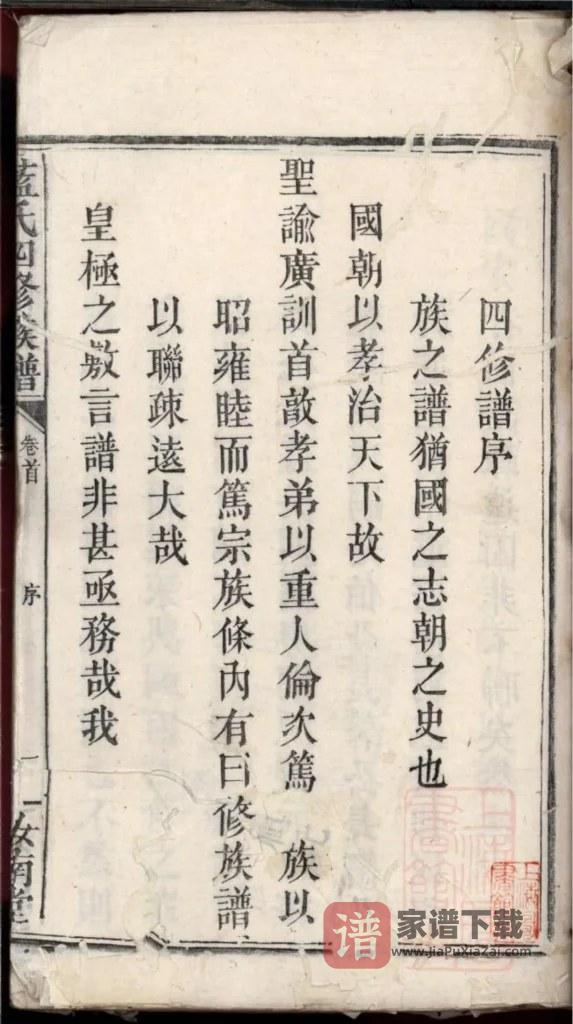 四修譜序
族之譜猶國之志朝之史也
國朝以孝治天下故
聖諭廣訓首敦孝弟以重人倫次篤 族以
昭雍睦而篤宗族條內有曰修族譜
以聯疎逺大哉
皇極之敷言譜非甚亟務哉我
藍氏四修族譜
卷首
序
一
汝南堂
譜
家谱下载
www.JiaPuXiaZai.com